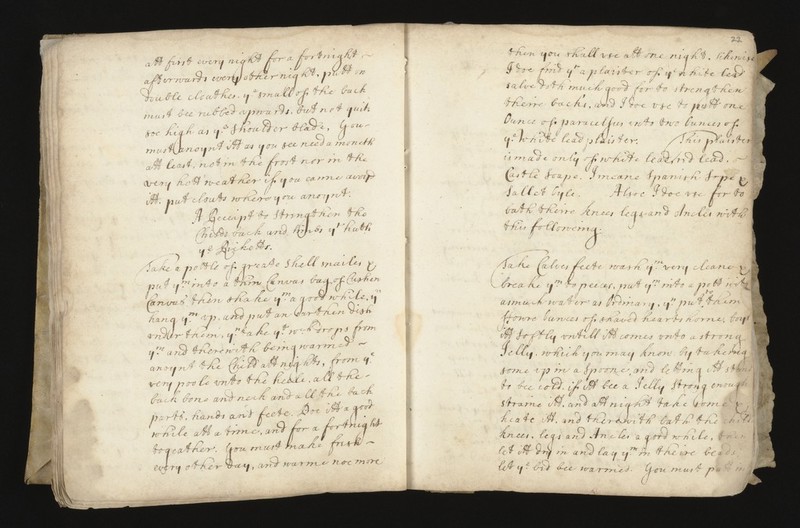 att first every night for a fortnight
afterwards every other night. putt on
double cloathes. ye small of the back
must bee rubbed upwards, but not quit
soe high as ye shoulder blade. you
must anoynt itt as you see need a moneth
att least. not in the frost nor in the
very hott weather if you canne avoyd
itt. put clouts where you anoynt.
A Receipt to strengthen the
Childs back and Limbs yt hath
ye Ricketts.
Take a pottle of greate shell snailes &
put ym into a thin Canvas bag of Cushen
Canvas then shake ym a good while. yn
hang ym up, and put an earthen dish
under them, yn take yt wch drops from
ym and therewith being warmed
anoynt the Child att nights, from ye
very poole unto the heele. all the
back bone and neck and all the back
parts. hands and feete. Doe itt a good
while att a time, and for a fortnight
togeather. You must make fresh
every other day, and warme noe more
22
then you shall use att one night. likewise
I doe find yt a plaister of ye white lead
salve doth much good for to strengthen
theire backs, and I doe use to putt one
Ounce of paracelsus into two Ounces of
ye white lead plaister. This plaister
is made only of white lead, red lead,
Castle soape. I meane Spanish Sope &
sallet oyle. Alsoe I doe use for to
bath theire knees legs and Ancles with
this following.
Take Calves feete wash ym very cleane &
breake ym to peices. put ym into a pott with
asmuch water as ordinary. yn put them
fowre ounces of shaved hearts horne, boyl
itt softly untill itt comes unto a strong
Jelly, which you may know by takeing
some up in a spoone, and letting itt stand
to bee cold, if itt bee a Jelly strong enough
straine itt. and att night take some &
heate itt. and therewith bath the childs
knees. legs and Ancles a good while, then
let itt dry in and lay ym in theire beds,
let ye bed bee warmed. You must putt in